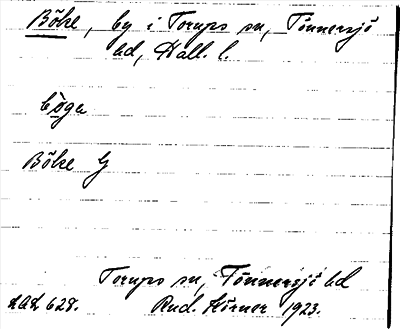 Böke, by i Torups sn, Tönnersjö
hd, Hall. l.
bö̀ga
Böke G
Torups sn, Tönnersjö hd
LAL 628. Rud. Hörner 1923.